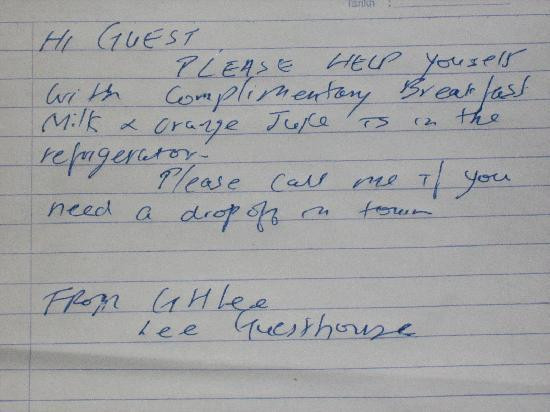 Tarikh
HI GUEST
PLEASE HELP youself
with Complimentary Breakfast
Milk & orange Juice is in the
refrigerator.
Please call me if you
need a drop off in town
FROM GH Lee
Lee Guesthouse